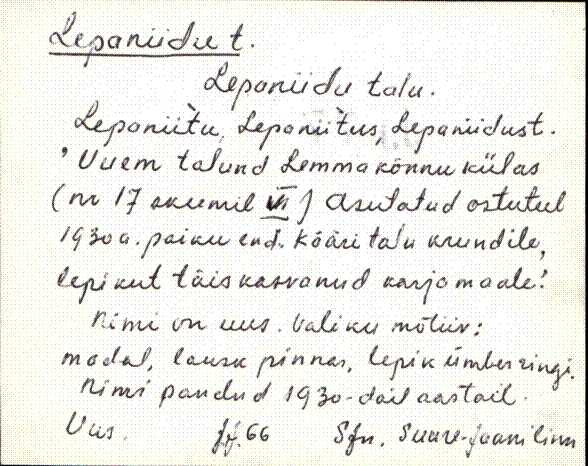 Lepaniidu t.
Lepaniidu talu.
Lepanii`tu, Lepanii`tus, Lepaniidust.
' Uuem talund Lemmakõnnu külas
(nr 17 skeemil VI) Asutatud ostutul
1930 a. paiku end. Kääri talu krundile,
lepikut täis kasvanud karjamaale.'
Nimi on uus. Valiku mõtiiv:
madal, lausk pinnas, lepik ümberringi.
Nimi pandud 1930-dail aastail.
Uus. 66 Sjn, Suure-Jaani linn